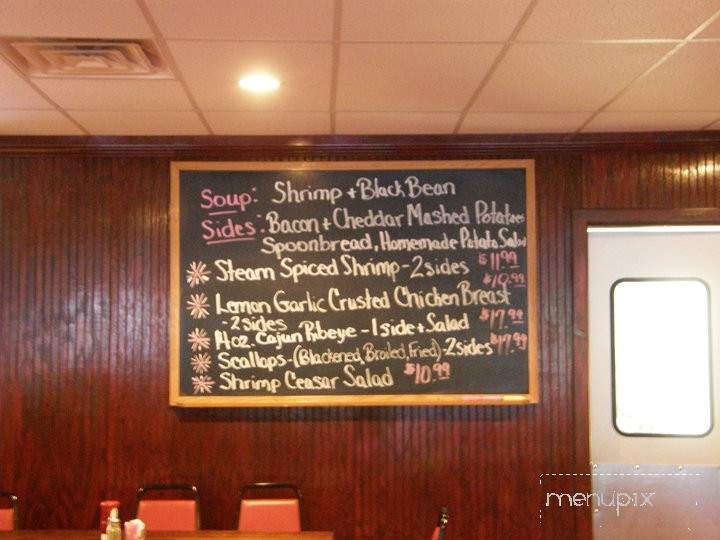 Soup: Shrimp + Black Bean
Sides: Bacon + Cheddar Mashed Potatoes
Spoonbread, Homemade Potato Salad
Steam Spiced Shrimp - 2 sides $11.99
Lemon Garlic Crusted Chicken Breast $10.99
- 2 sides
14oz. Cajun Ribeye - 1 side + Salad $17.99
Scallops - (Blackened, Broiled, Fried) - 2 sides $17.99
Shrimp Ceasar Salad $10.99
menupix